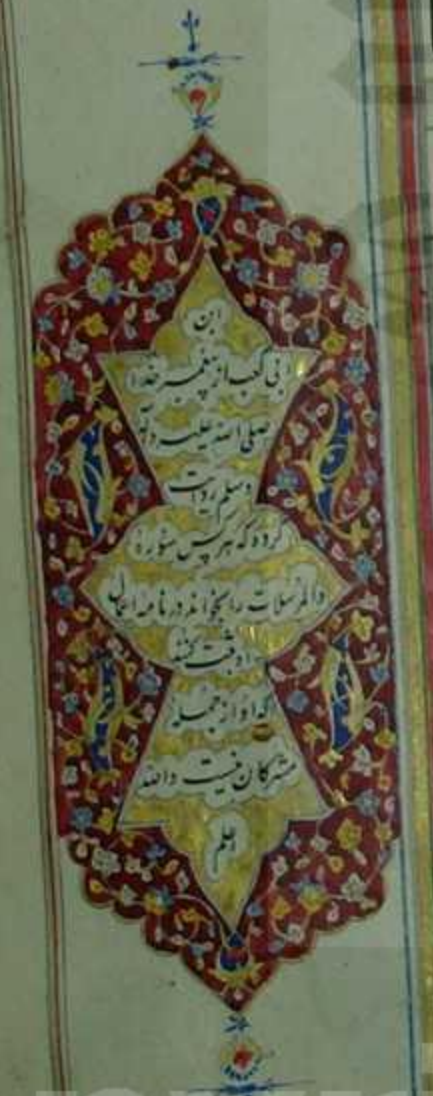 ابن
ابی کعب از پیغمبر خدا
صلی الله علیه و آله
وسلم روایت
کرده که هر کس سوره
والمرسلات را بخواند در نامه اعمال
او ثبت کنند
که او از جمله
مشرکان نیست والله
اعلم